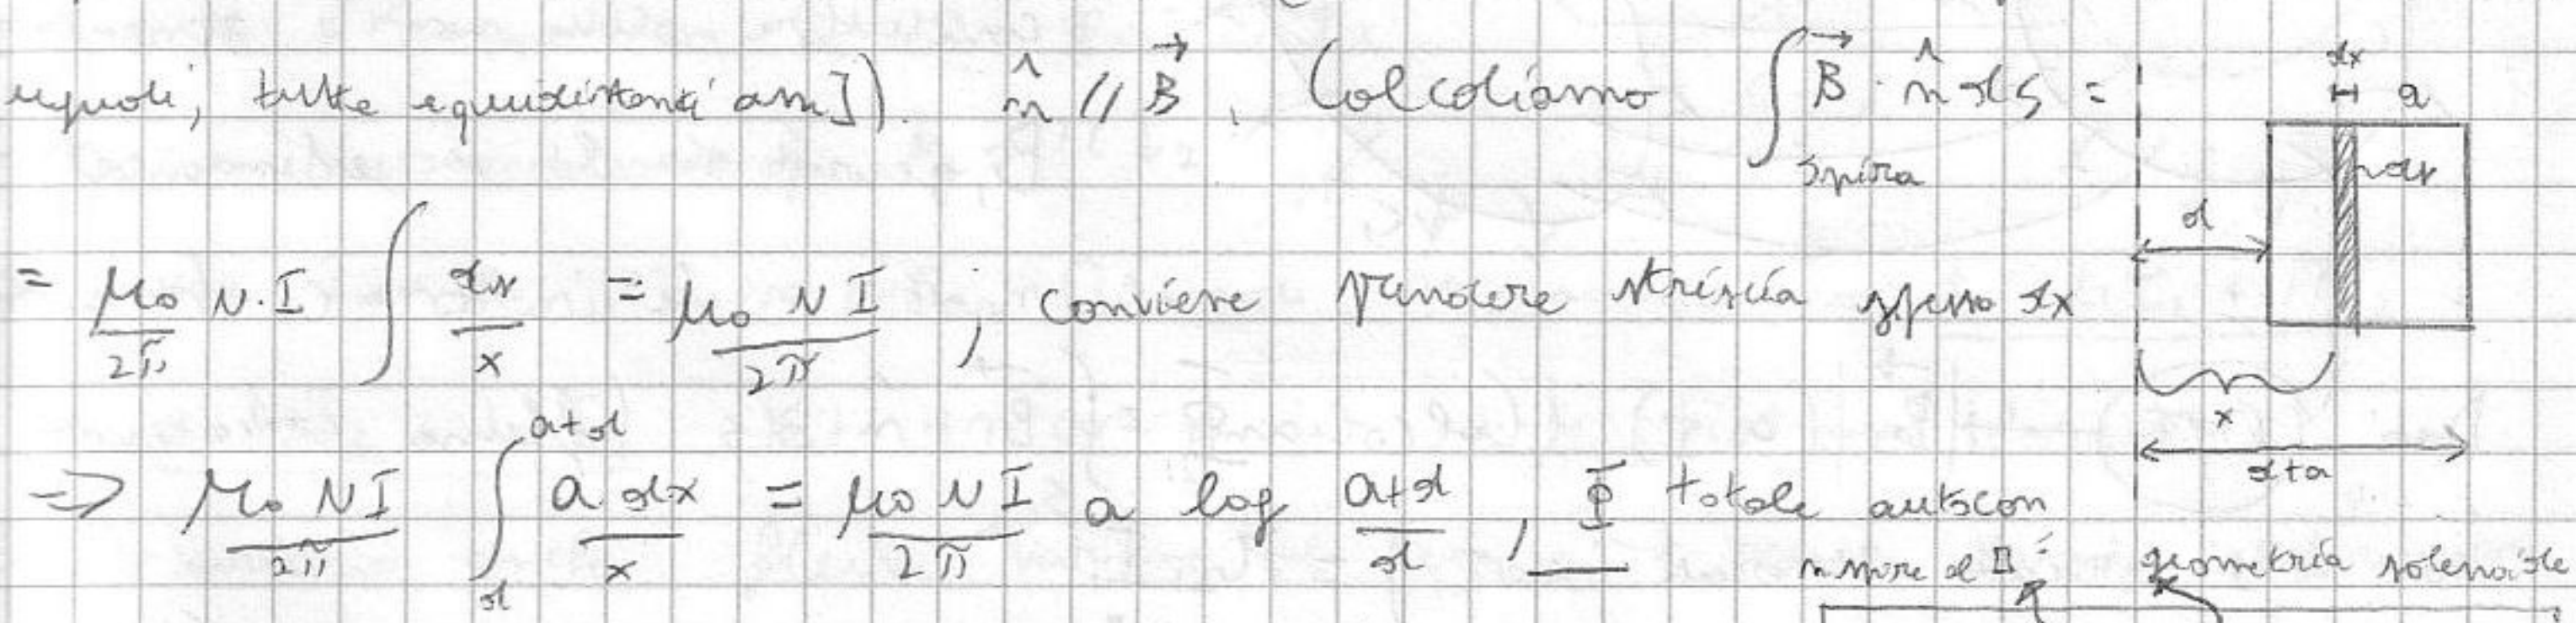 uguali, tutte equidistanti am]). n̂ // B⃗. Calcoliamo ∫_Spira B⃗ · n̂ dS =
= μ₀/2π N·I ∫ ds/x = μ₀ N I/2π ; conviene prendere striscia spessa dx
=> μ₀ N I/2π ∫_d^{a+d} a dx/x = μ₀ N I/2π a log (a+d)/d , Φ totale autocon
n spire geometria solenoide
dx
a
d
x
d+a